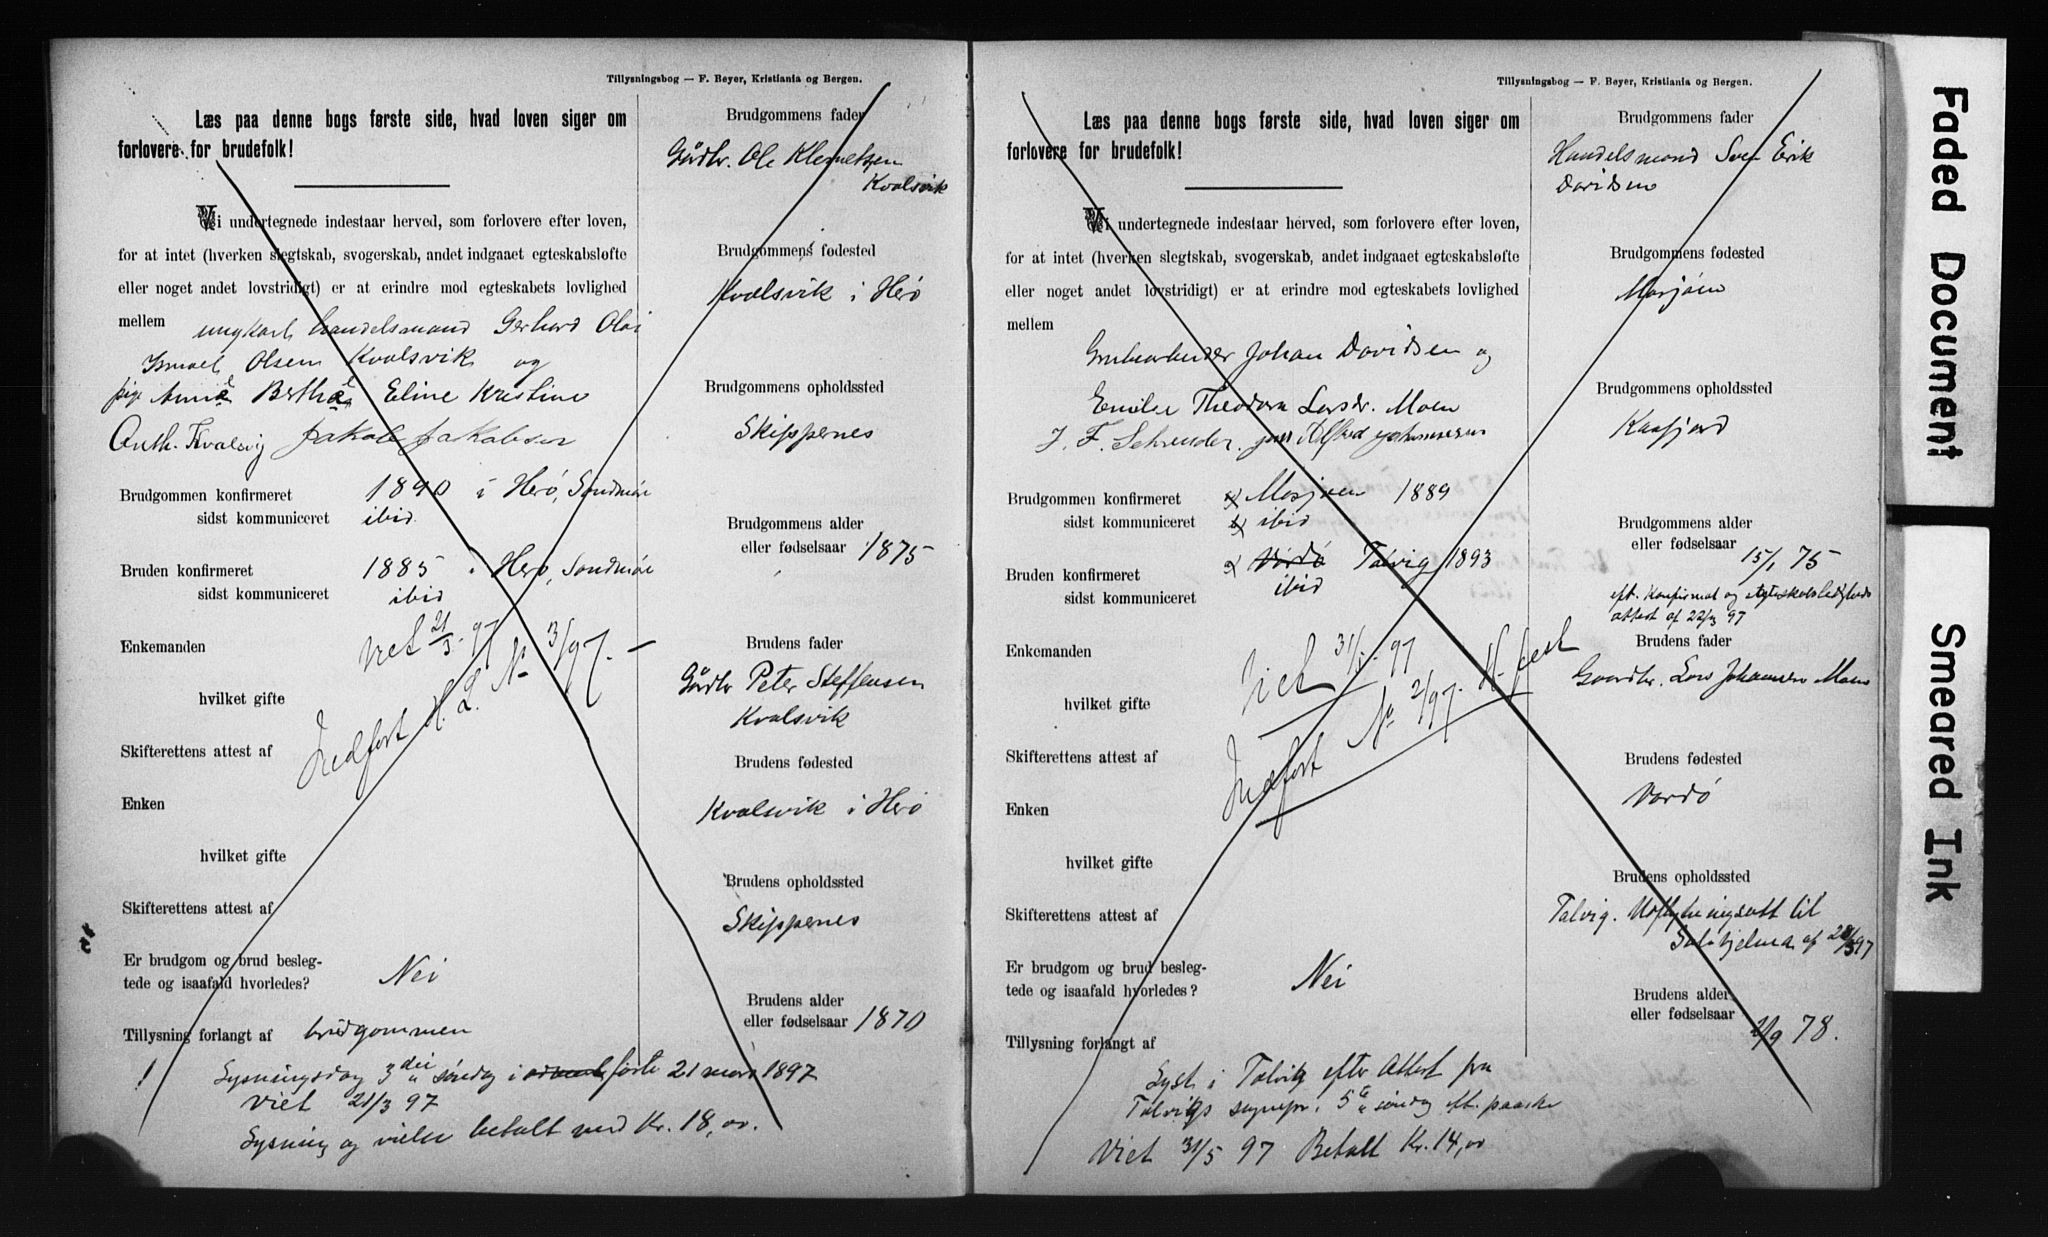 Tillysningsbog — F. Beyer, Kristiania og Bergen.
Læs paa denne bogs første side, hvad loven siger om
forlovere for brudefolk!
Vi undertegnede indestaar herved, som forlovere efter loven,
for at intet (hverken slegtskab, svogerskab, andet indgaaet egteskabsløfte
eller noget andet lovstridigt) er at erindre mod egteskabets lovlighed
mellem ungkarl handelsmand Gerhard Olai
Ismael Olsen Kvalsvik og
pige Bertha Eline Kristine
Anth. Kvalsvig Jakob Jakobsen
Brudgommen konfirmeret 1890 i Herø, Søndmøre
sidst kommuniceret ibid.
Bruden konfirmeret 1885 i Herø, Søndmøre
sidst kommuniceret ibid
Enkemanden viet 21/3 97
hvilket gifte
Indført H. L. No 3/97. —
Skifterettens attest af
Enken
hvilket gifte
Skifterettens attest af
Er brudgom og brud besleg-
tede og isaafald hvorledes? Nei
Tillysning forlangt af brudgommen
Lysningsdag 3die søndag i faste 21 mars 1897
Viet 21/3 97
Lysning og vielse betalt med Kr. 18,00.
Brudgommens fader
Gårdbr. Ole Klemetsen
Kvalsvik
Brudgommens fødested
Kvalsvik i Herø
Brudgommens opholdssted
Skippernes
Brudgommens alder
eller fødselsaar 1875
Brudens fader
Gårdbr Peter Steffensen
Kvalsvik
Brudens fødested
Kvalsvik i Herø
Brudens opholdssted
Skippernes
Brudens alder
eller fødselsaar 1870
Tillysningsbog — F. Beyer, Kristiania og Bergen.
Læs paa denne bogs første side, hvad loven siger om
forlovere for brudefolk!
Vi undertegnede indestaar herved, som forlovere efter loven,
for at intet (hverken slegtskab, svogerskab, andet indgaaet egteskabsløfte
eller noget andet lovstridigt) er at erindre mod egteskabets lovlighed
mellem
Grubearbeider Johan Davidsen og
Emilie Theodora Larsdr. Moen
J. F. Schrøuder. Alfred Johannesen
Brudgommen konfirmeret Mosjøen 1889
sidst kommuniceret ibid
Bruden konfirmeret Vardø Talvig 1893
sidst kommuniceret ibid
Enkemanden
Viet 31/5 97
hvilket gifte
Indført No 2/97.
Skifterettens attest af
Enken
hvilket gifte
Skifterettens attest af
Er brudgom og brud besleg-
tede og isaafald hvorledes? Nei
Tillysning forlangt af
Lyst i Talvig efter Attest fra
Talvigs sognepr. 5te søndag eft. paaske
Viet 31/5 97 Betalt Kr. 14,00
Brudgommens fader
Handelsmand Sven Erik
Davidsen
Brudgommens fødested
Mosjøen
Brudgommens opholdssted
Kaafjord
Brudgommens alder
eller fødselsaar 15/1 75
eft. Konfirmat og Ægteskabsledigheds
attest af 22/3 97
Brudens fader
Gaardbr. Lars Johannesen Moen
Brudens fødested
Vardø
Brudens opholdssted
Talvig. Udflytningsatt til
Brudens alder
eller fødselsaar 78.
Faded Document
Smeared Ink